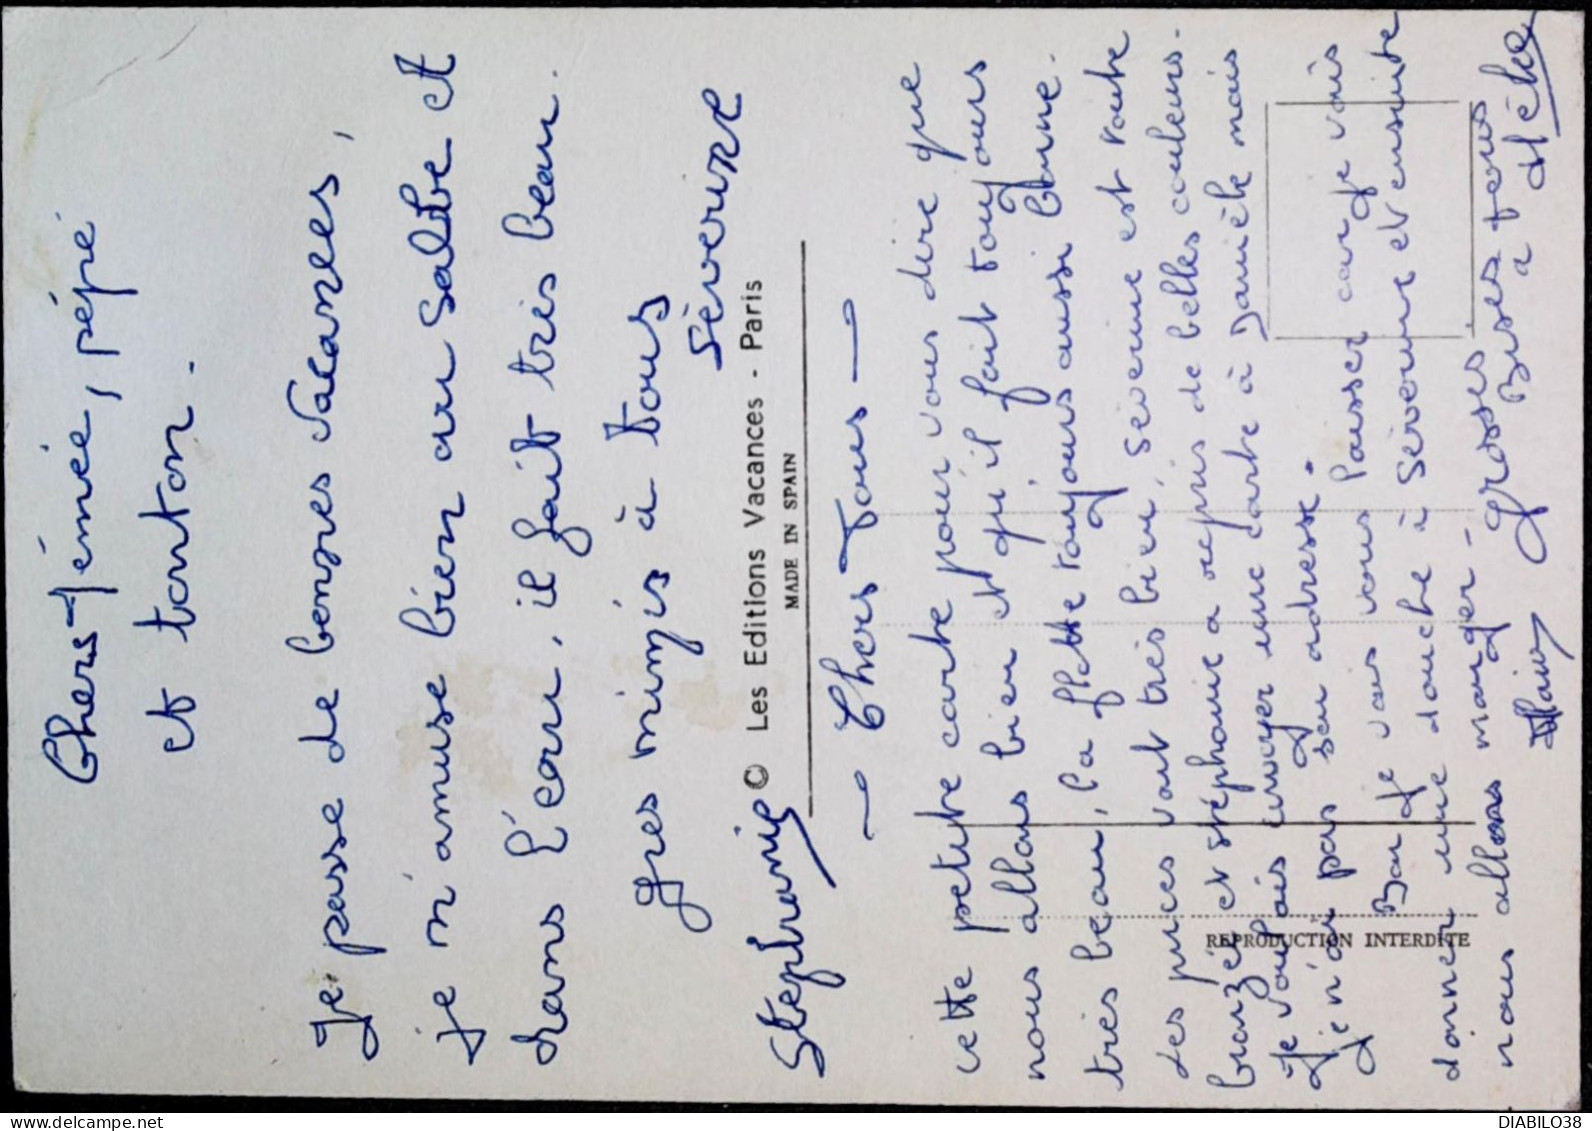 Chers Mémée, pépé
et tonton.
Je passe de bonnes vacances,
je m'amuse bien au sable et
dans l'eau, il fait très beau.
Gros mimis à tous
Séverine
Stéphanie
© Les Editions Vacances - Paris
MADE IN SPAIN
Chers Tous
cette petite carte pour vous dire que
nous allons bien et qu'il fait toujours
très beau, la flotte toujours aussi bonne.
Les puces vont très bien, séverine est toute
bronzée et stéphanie a repris de belles couleurs.
Je voulais envoyer une carte à Danièle mais
je n'ai pas son adresse.
Bon je vais vous laisser car je vais
donner une douche à Séverine et ensuite
nous allons manger -
grosses
Bises à tous
REPRODUCTION INTERDITE
DIABILO38